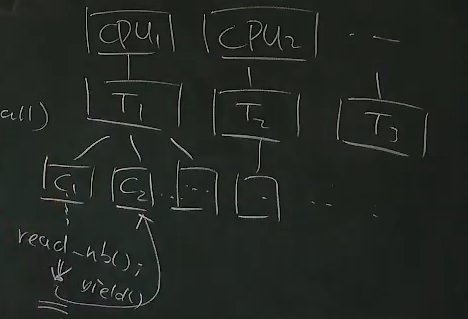 CPU1 CPU2 ...
T1 T2 T3
all)
C1 C2 ... . ...
read_nb();
yield()